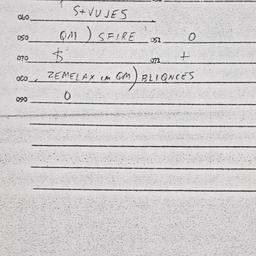 040 S+VUJES
050 GM) SFIRE 052 0
070 5 072 +
080 ZEMELAX GM) BLIQNCES
090 0